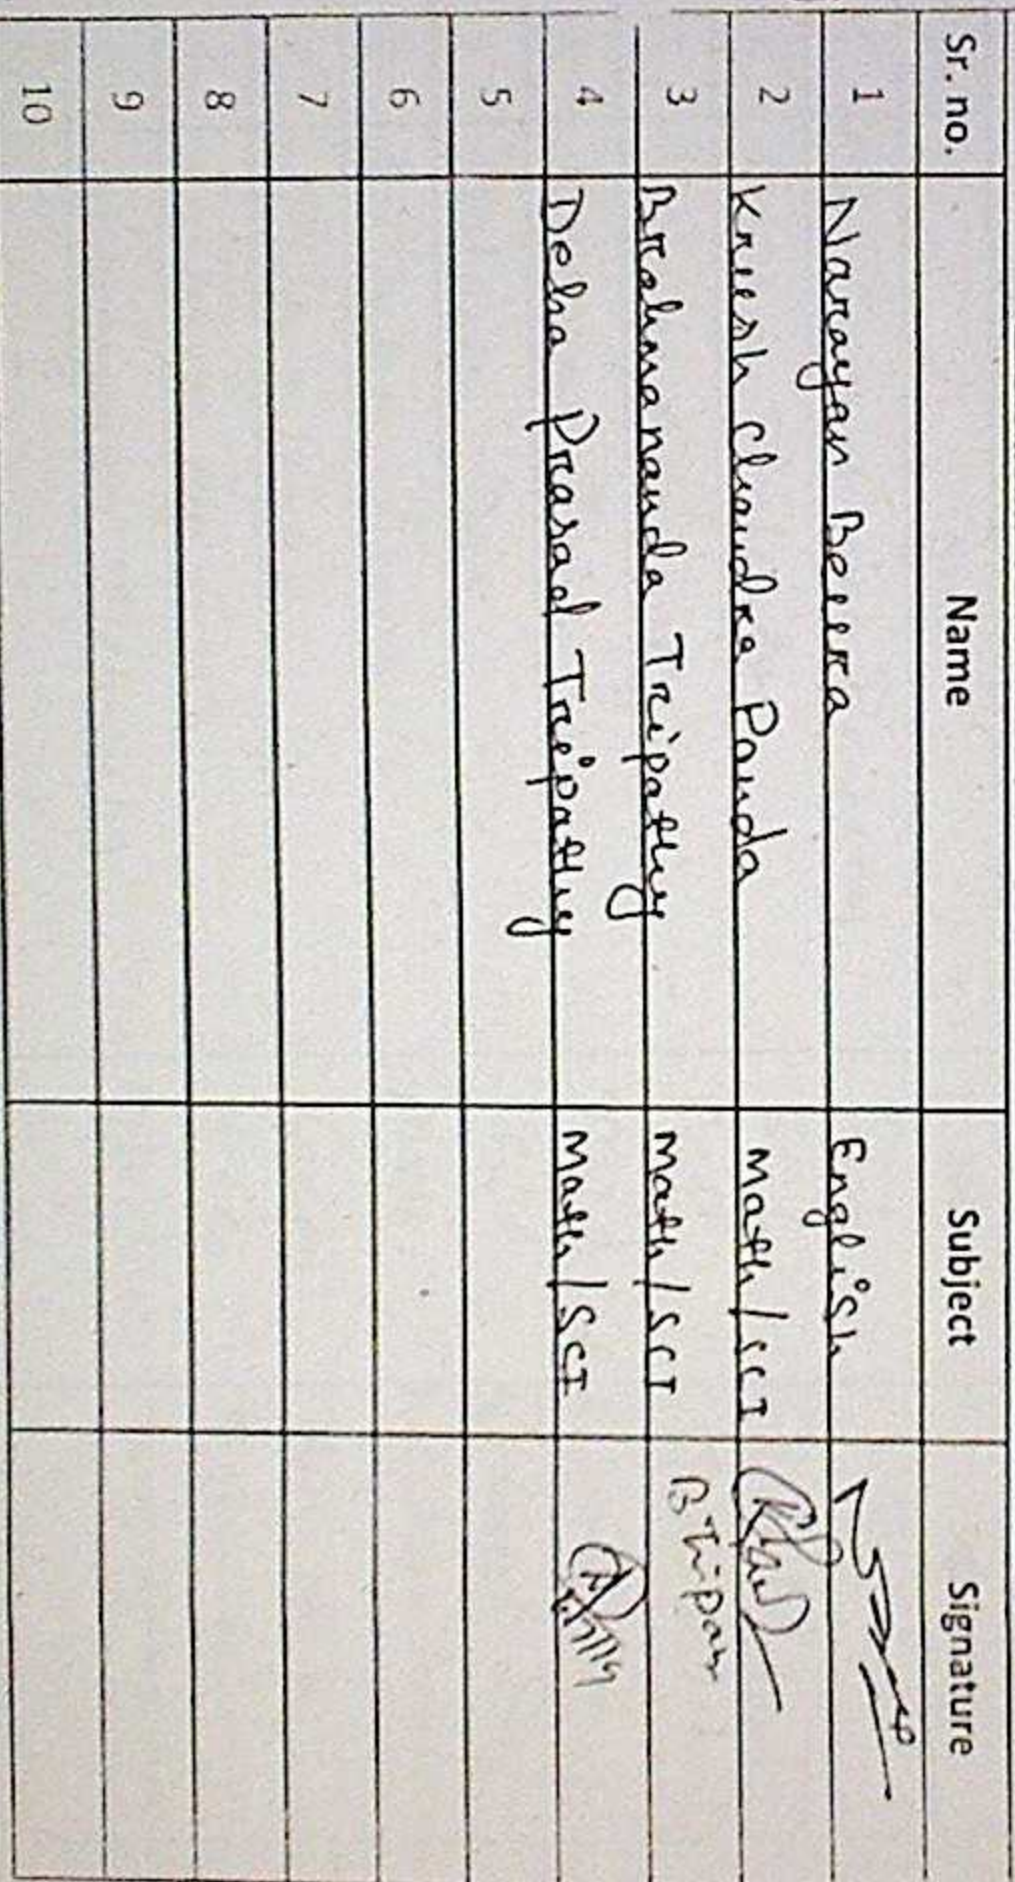 Sr. no. Name Subject Signature
1 Narayan Beura English
2 Kruesh Chandra Panda Math/SCI
3 Brahmananda Tripathy Math/SCI B Tripathy
4 Deba Prasad Tripathy Math/SCI
5
6
7
8
9
10